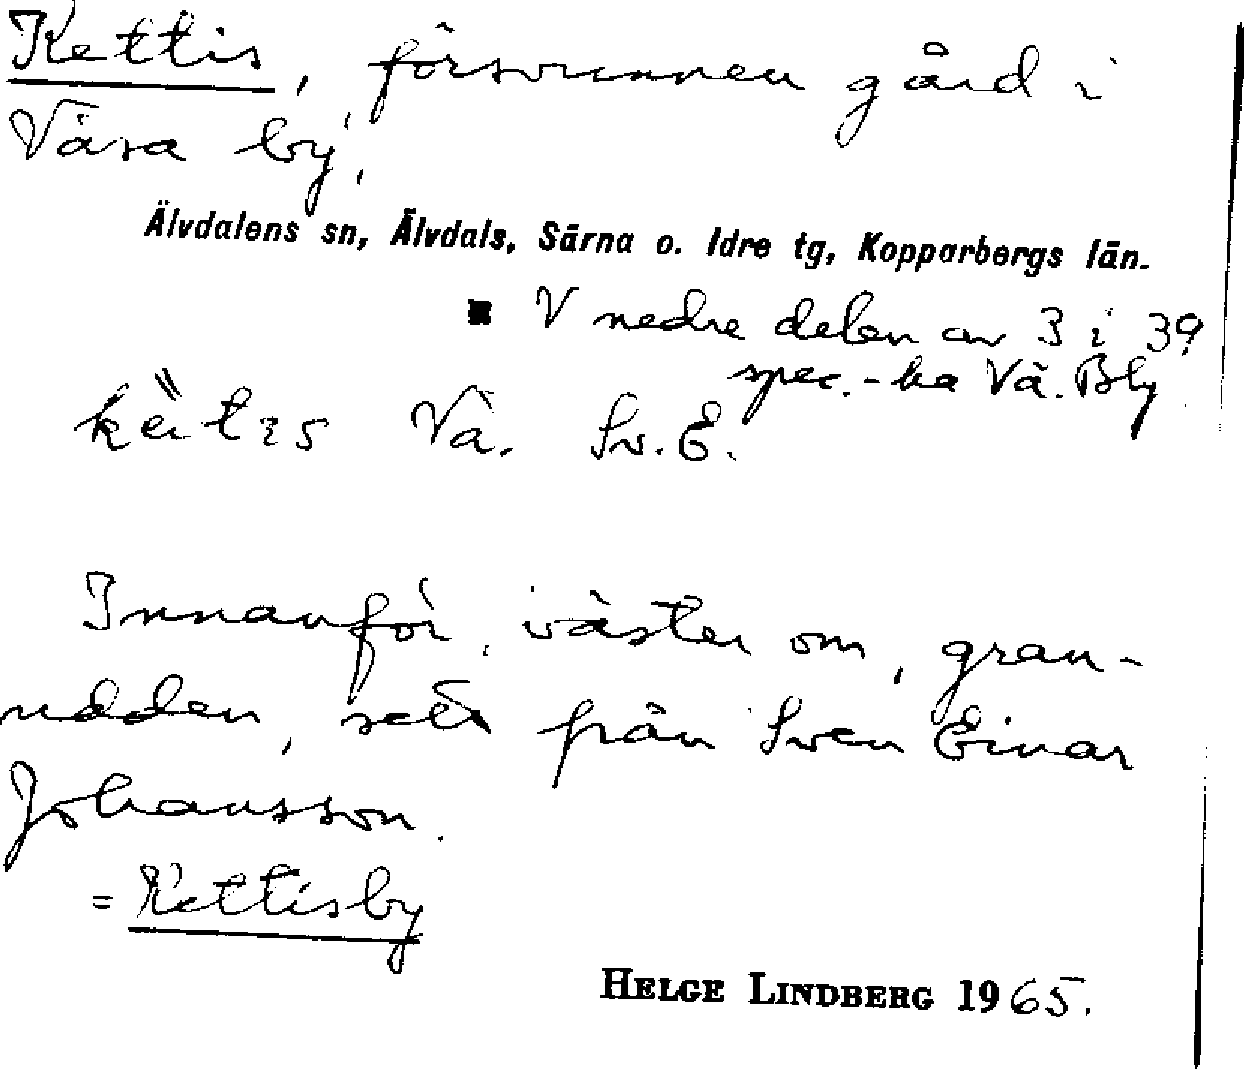 Kettis, försvunnen gård i
Väsa by,
Älvdalens sn, Älvdals, Särna o. Idre tg, Kopparbergs län.
V nedre delen av 3 i 39
spec.-ka Vä. Bly
Vä. Sv. E.
Innanför, väster om, gran-
udden, sett från Sven Einar
Johansson.
= Kettisby
HELGE LINDBERG 1965.